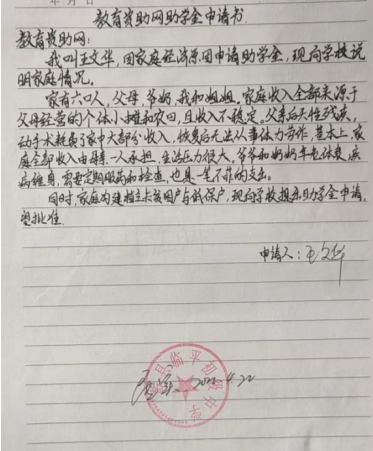 年 月 日
教育资助网助学金申请书
教育资助网：
我叫王文华，因家庭经济原因申请助学金，现向学校说
明家庭情况。
家有六口人，父母，爷奶，我和姐姐，家庭收入全部来源于
父母经营的个体小摊和农田，且收入不稳定。父亲后天性残疾，
动手术耗费了家中大部分收入，恢复后无法从事体力劳作，基本上，家
庭全部收入由母亲一人承担，生活压力很大，爷爷和奶奶年老体衰，疾
病缠身，需要定期服药和检查，也是一笔不菲的支出。
同时，家庭为建档立卡贫困户与低保户，现向学校提出助学金申请，
望批准
申请人：王文华
县临平初级中学
4.22